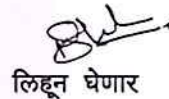 लिहून घेणार